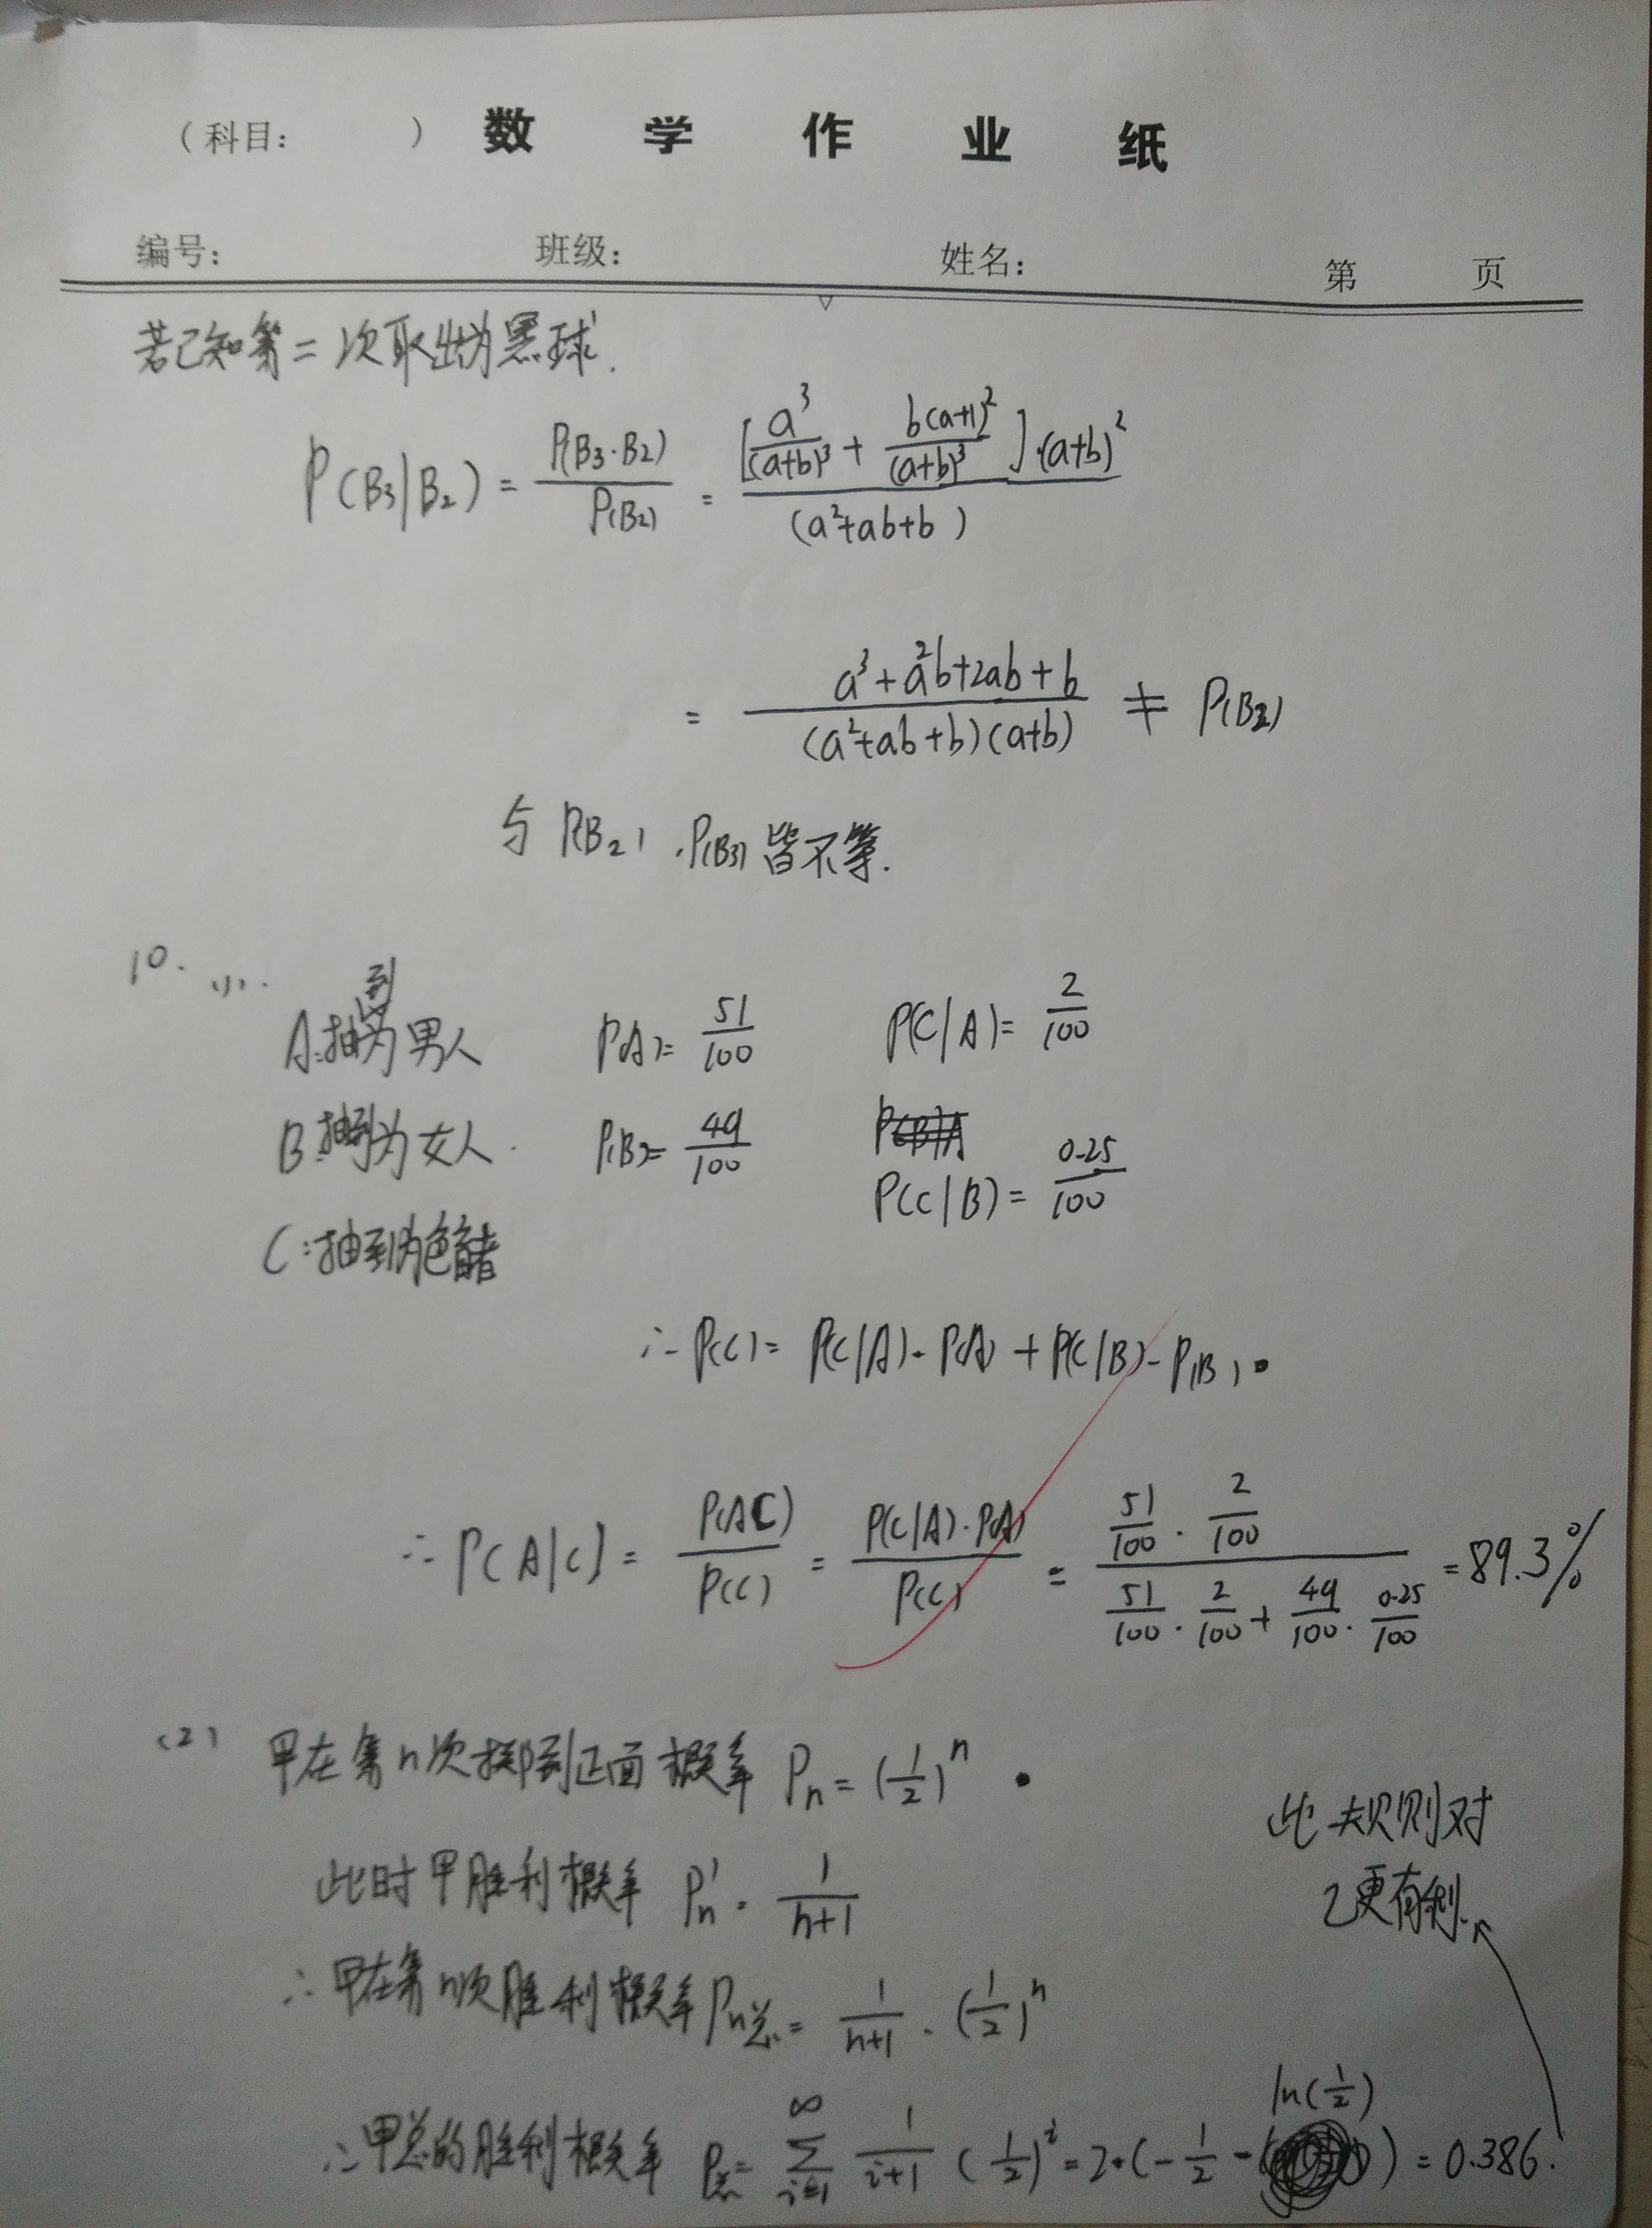 （科目：　　） 数 学 作 业 纸
编号：　班级：　姓名：　第　页
若已知第二次取出为黑球.
P(B₃|B₂) = P(B₃·B₂) / P(B₂) = [a³/(a+b)³ + b(a+1)²/(a+b)³]·(a+b)² / (a²+ab+b)
= (a³+a²b+2ab+b) / ((a²+ab+b)(a+b)) ≠ P(B₂)
与 P(B₂), P(B₃) 皆不等.
10. (1).
A:抽到为男人 P(A)= 51/100 P(C|A)= 2/100
B:抽到为女人. P(B)= 49/100 P(C|B)= 0.25/100
C:抽到为色盲者
∴ P(C)= P(C|A)·P(A) + P(C|B)·P(B).
∴ P(A|C) = P(AC)/P(C) = P(C|A)·P(A)/P(C) = (51/100 · 2/100) / (51/100 · 2/100 + 49/100 · 0.25/100) = 89.3%
(2) 甲在第n次掷到正面概率 Pₙ = (1/2)ⁿ
此时甲胜利概率 Pₙ' = 1/(n+1)
∴甲在第n次胜利概率 Pₙ总 = 1/(n+1) · (1/2)ⁿ
∴甲总的胜利概率 P总 = ∑_{i=1}^{∞} 1/(i+1) (1/2)ⁱ = 2·(-1/2 - ln(1/2)) = 0.386.
此规则对
乙更有利.